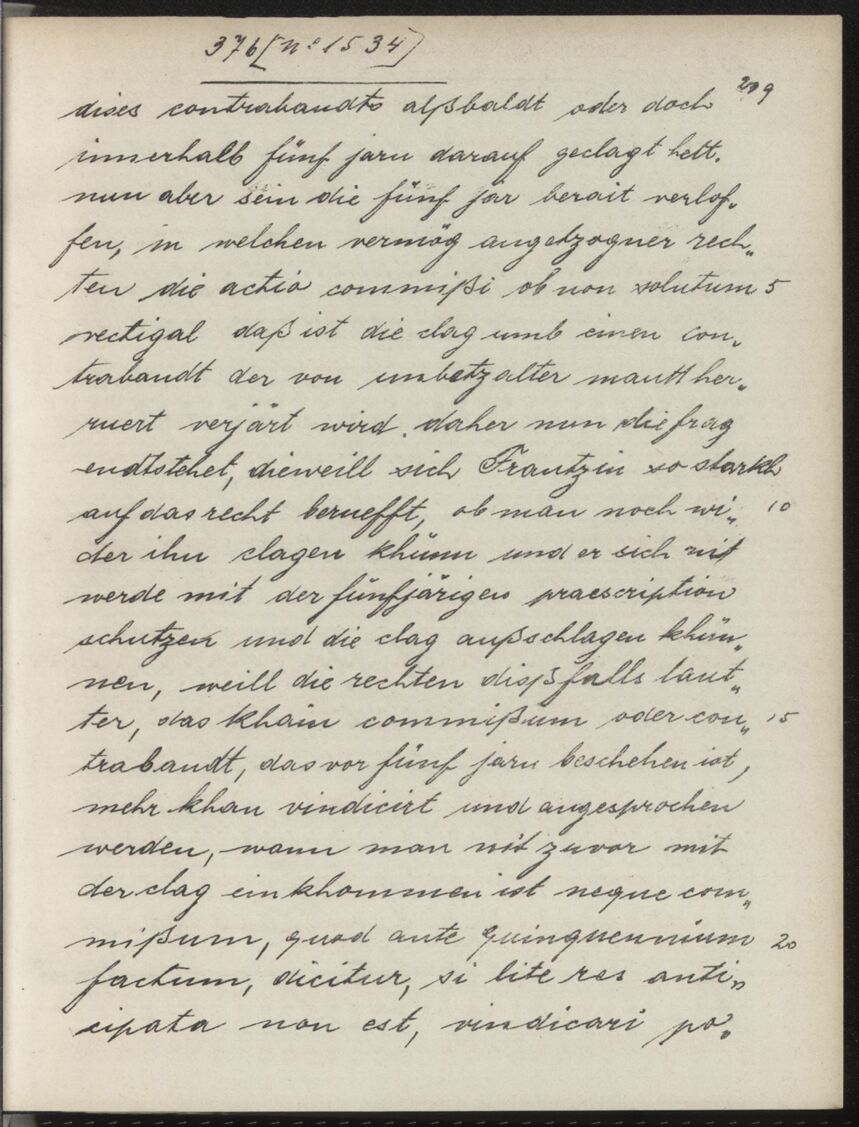 376[n° 1534]
209
dises contrabandts alßbaldt oder doch
innerhalb fünf jarn darauf geclagt hett.
nun aber sein die fünf jar berait verlof„
fen, in welchen vermög angetzogner rech„
ten die actio commißi ob non solutum 5
vectigal daß ist die clag umb einen con„
trabandt der von unbetzalter mautt her„
ruert verjärt wird. daher nun die frag
endtstehet, dieweill sich Frantzin so starkh
auf das recht beruefft, ob man noch wi„ 10
der ihn clagen khünn und er sich nit
werde mit der fünfjärigen praescription
schutzen und die clag außschlagen khün„
nen, weill die rechten dißfalls laut„
ter, das khain commißum oder con„ 15
trabandt, das vor fünf jarn beschehen ist,
mehr khan vindicirt und angesprochen
werden, wann man nit zuvor mit
der clag einkhommen ist neque com„
mißum, quod ante quinquennium 20
factum, dicitur, si lite res anti„
cipata non est, vindicari po„